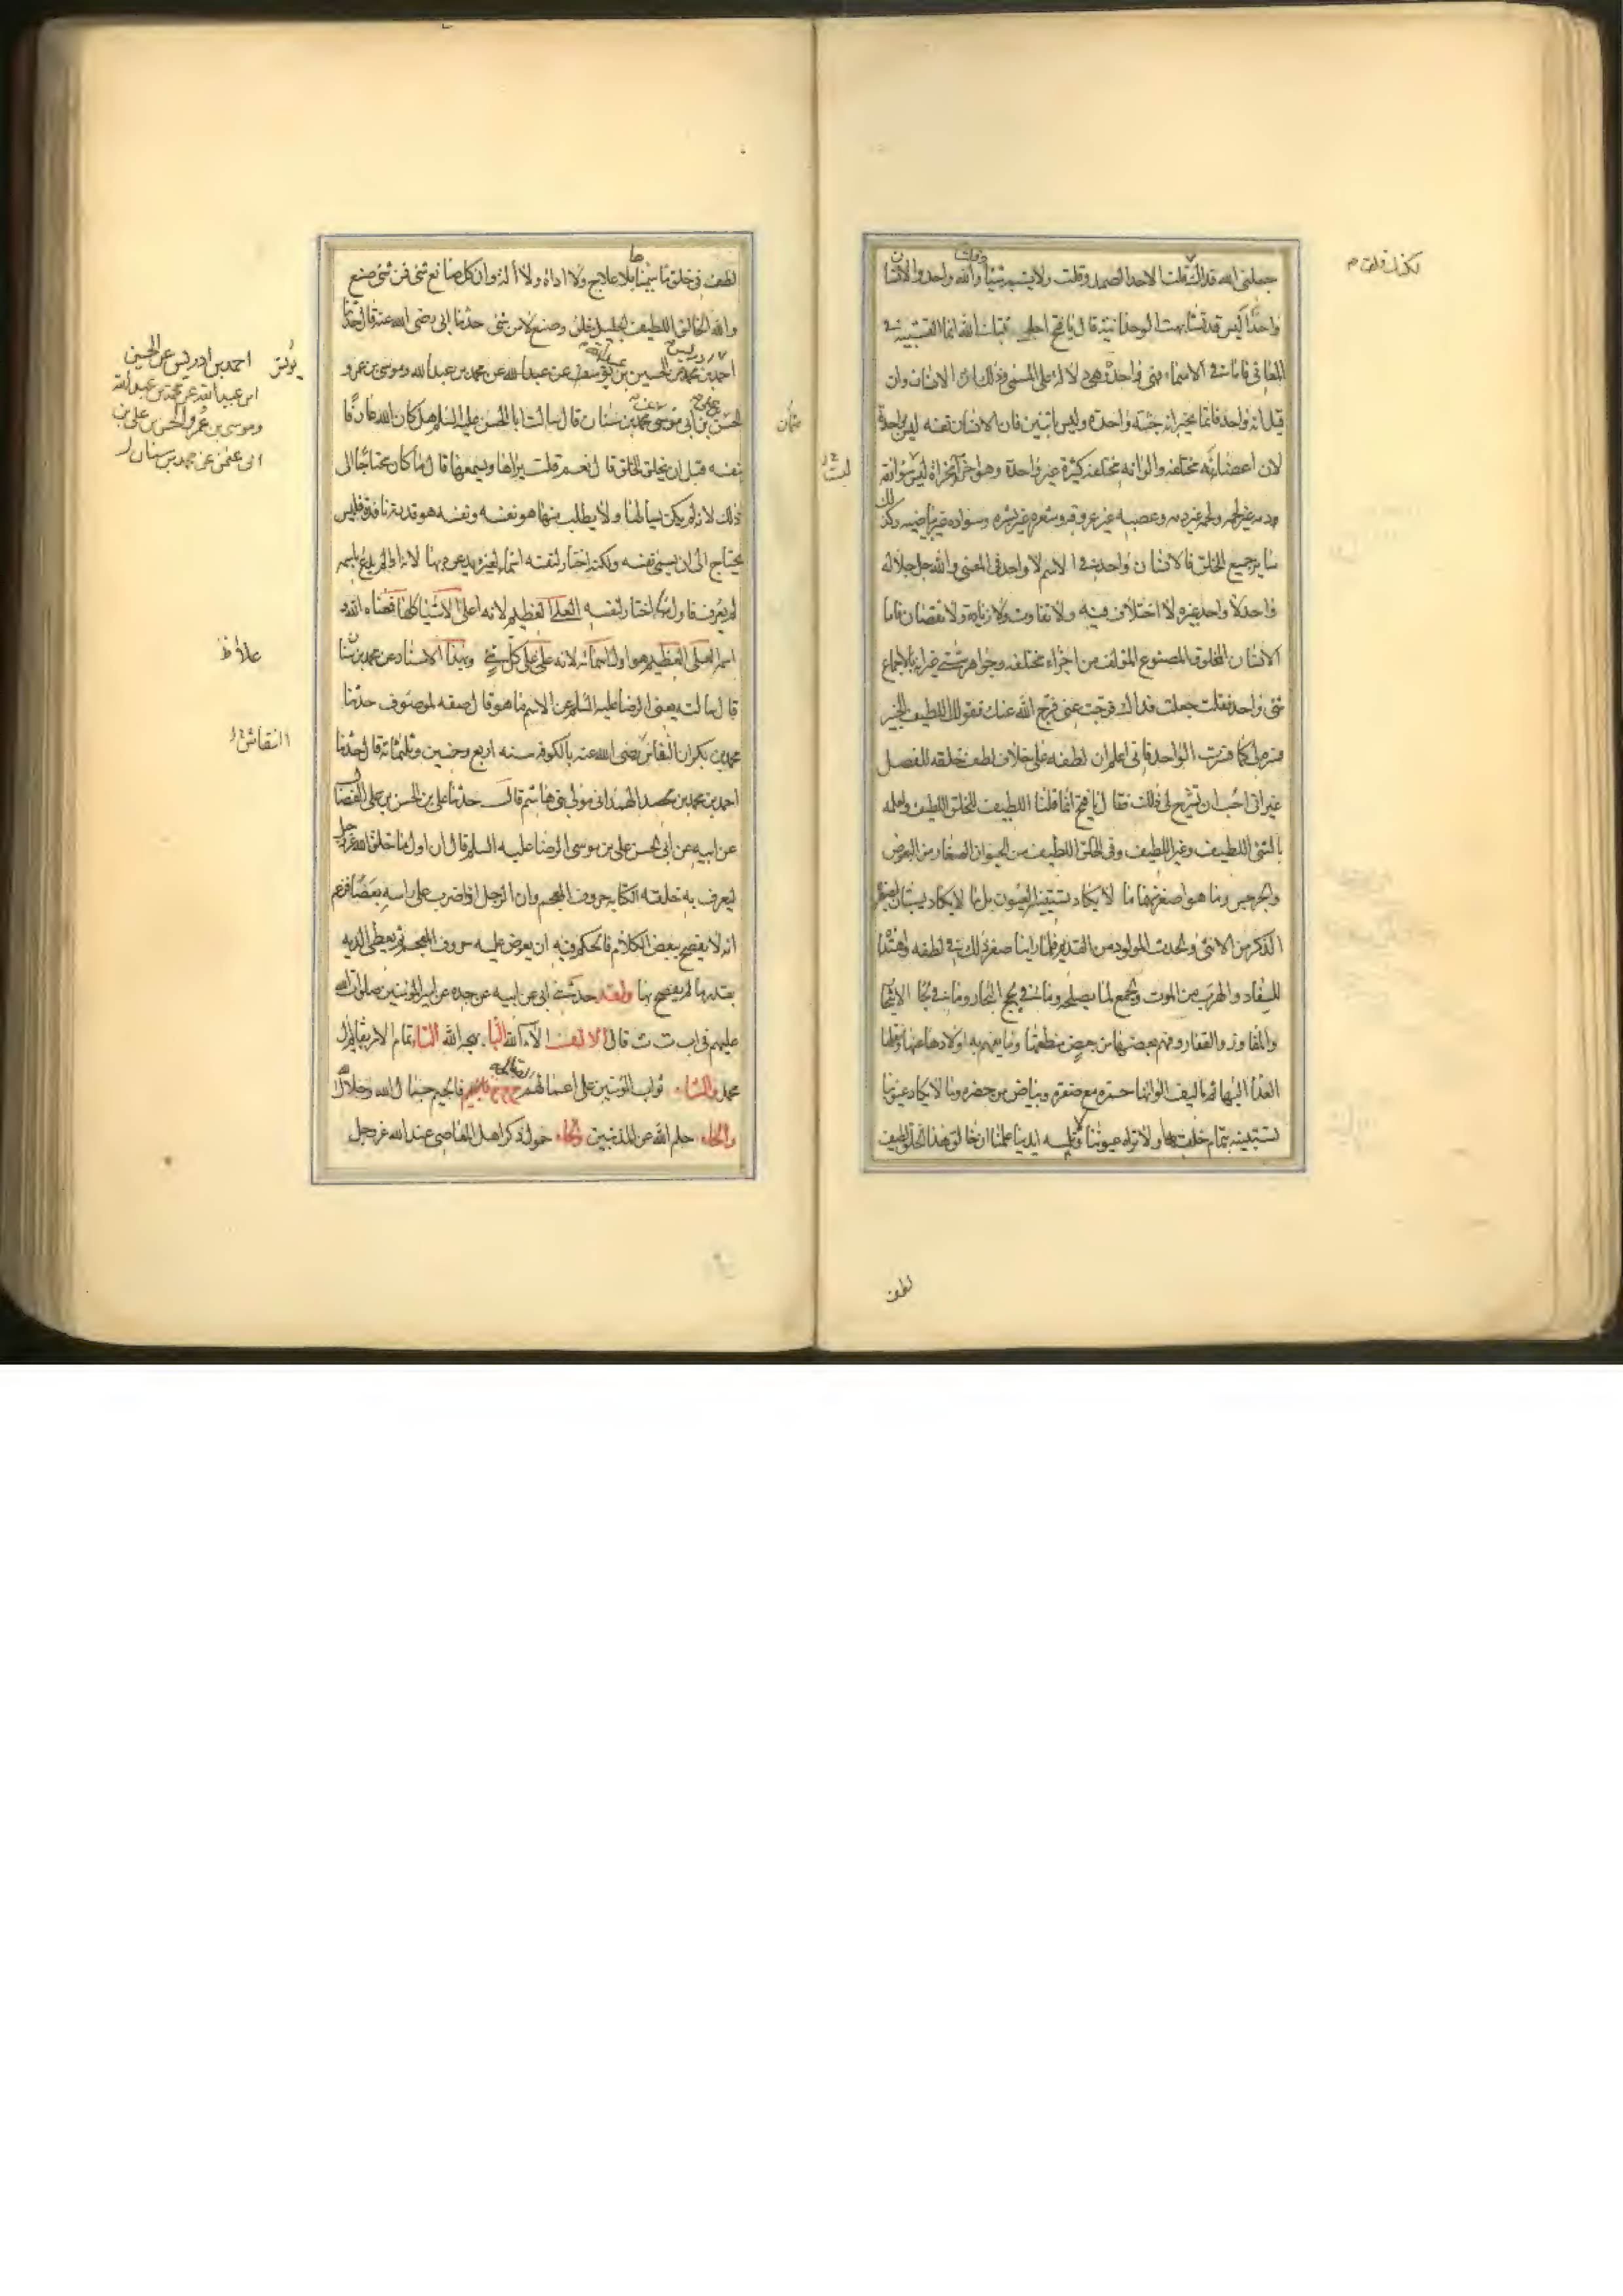 جعلنى الله فداك قلت الاحد الصمد وقلت ولا يشبه شيئا والله واحد والانسان
واحدا ليس قد تشابهت الوحدانية قال يا فتح احلت ثبتك الله انما التشبيه فى
المعانى فاما فى الاسماء فهى واحدة وهى دلالة على المسمى وذلك ان الانسان وان
قيل انه واحد فانما يخبر انه جثة واحدة وليس باثنين فان الانسان نفسه ليس بواحدة
لان اعضائه مختلفة والوانه مختلفة كثيرة غير واحدة وهو اجزاء مجزاة ليس سواء
دمه غير لحمه ولحمه غير دمه وعصبه غير عروقه وشعره غير بشره وسواده غير بياضه وكذلك
سائر جميع الخلق فالانسان واحد فى الاسم لا واحد فى المعنى والله جل جلاله
واحد لا واحد غيره لا اختلاف فيه ولا تفاوت ولا زيادة ولا نقصان فاما
الانسان المخلوق المصنوع المؤلف من اجزاء مختلفة وجواهر شتى غير انه بالاجتماع
شىء واحد فقلت جعلت فداك فرجت عنى فرج الله عنك فقولك اللطيف الخبير
فسره لى كما فسرت الواحد فانى اعلم ان لطفه على خلاف لطف خلقه للفصل
غير انى احب ان تشرح لى ذلك فقال يا فتح انما قلنا اللطيف للخلق اللطيف ولعلمه
بالشىء اللطيف وغير اللطيف وفى الخلق اللطيف من الحيوان الصغار من البعوض
والجرجس وما هو اصغر منهما ما لا يكاد تستبينه العيون بل لا يكاد يستبان لصغره
الذكر من الانثى والحدث المولود من القديم فلما راينا صغر ذلك فى لطفه واهتداءه
للسفاد والهرب من الموت والجمع لما يصلحه وما فى لجج البحار وما فى لحاء الاشجار
والمفاوز والقفار وفهم بعضها من بعض منطقها وما يفهم به اولادها عنها ونقلها
الغذاء اليها ثم تاليف الوانها حمرة مع صفرة وبياض مع حضرة وما لا يكاد عيوننا
تستبينه بتمام خلقها ولا تراه عيوننا ولا تلمسه ايدينا علمنا ان خالق هذا الخلق لطيف
لطف
لطف فى خلق ما سمينا بلا علاج ولا اداة ولا آلة وان كل صانع شىء فمن شىء صنع
والله الخالق اللطيف الجليل خلق وصنع لا من شىء حدثنا ابى رضى الله عنه قال حدثنا
احمد بن محمد عن الحسين بن يوسف عن عبد الله عن محمد بن عبد الله وموسى بن عمرو
الحسن بن ابى موسى محمد بن سنان قال سالت ابا الحسن عليه السلم هل كان الله عارفا
بنفسه قبل ان يخلق الخلق قال نعم قلت يراها ويسمعها قال ما كان محتاجا الى
ذلك لانه لم يكن يسالها ولا يطلب منها هو نفسه ونفسه هو قدرته نافذة فليس
يحتاج الى ان يسمى نفسه ولكنه اختار لنفسه اسماء لغيره يدعوه بها لانه اذا لم يدع باسمه
لم يعرف فاول ما اختار لنفسه العلى العظيم لانه اعلى الاشياء كلها فمعناه الله
اسمه العلى العظيم هو اول اسمائه لانه على على كل شىء وبهذا الاسناد عن محمد بن سنان
قال سالته يعنى الرضا عليه السلم عن الاسم ما هو قال صفة لموصوف حدثنا
محمد بن بكران النقاش رضى الله عنه بالكوفه سنه اربع وخمسين وثلثمائة قال حدثنا
احمد بن محمد الهمدانى مولى بنى هاشم قال حدثنا على بن الحسن بن على الفضال
عن ابيه عن ابى الحسن على بن موسى الرضا عليه السلم قال ان اول ما خلق الله عز وجل
ليعرف به خلقه الكتابه حروف المعجم وان الرجل اذا ضرب على راسه بعصا فزعم
انه لا يفصح ببعض الكلام فالحكم فيه ان يعرض عليه حروف المعجم ثم يعطى الديه
بقدر ما لم يفصح بها ولقد حدثنى ابى عن ابيه عن جده عن امير المؤمنين صلوات الله
عليهم فى ا ب ت ث قال الالف آلاء الله البا بهجه الله التا تمام الامر بقائم آل
محمد والثاء ثواب المؤمنين على اعمالهم الصالحه ج ح خ فالجيم جمال الله وجلال الله
والحاء حلم الله عن المذنبين والخاء خمول ذكر اهل المعاصى عند الله عز وجل
احمد بن ادريس عن الحسين
ابن عبيد الله عن محمد بن عبد الله
وموسى بن عمر والحسن بن على بن
ابى عثمن عن محمد بن سنان
علا
النقاش